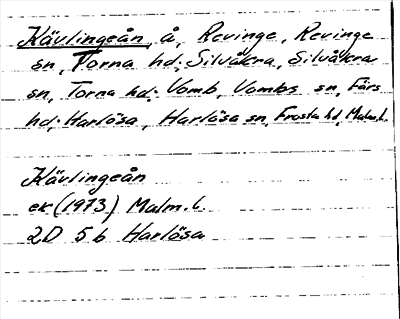 Kävlingeån, å, Revinge, Revinge
sn, Torna hd; Silvåkra, Silvåkra
sn, Torna hd; Vomb, Vombs sn, Färs
hd; Harlösa, Harlösa sn, Frosta hd, Malm.l.
Kävlingeån
ek (1973) Malm.l.
2D 5b Harlösa